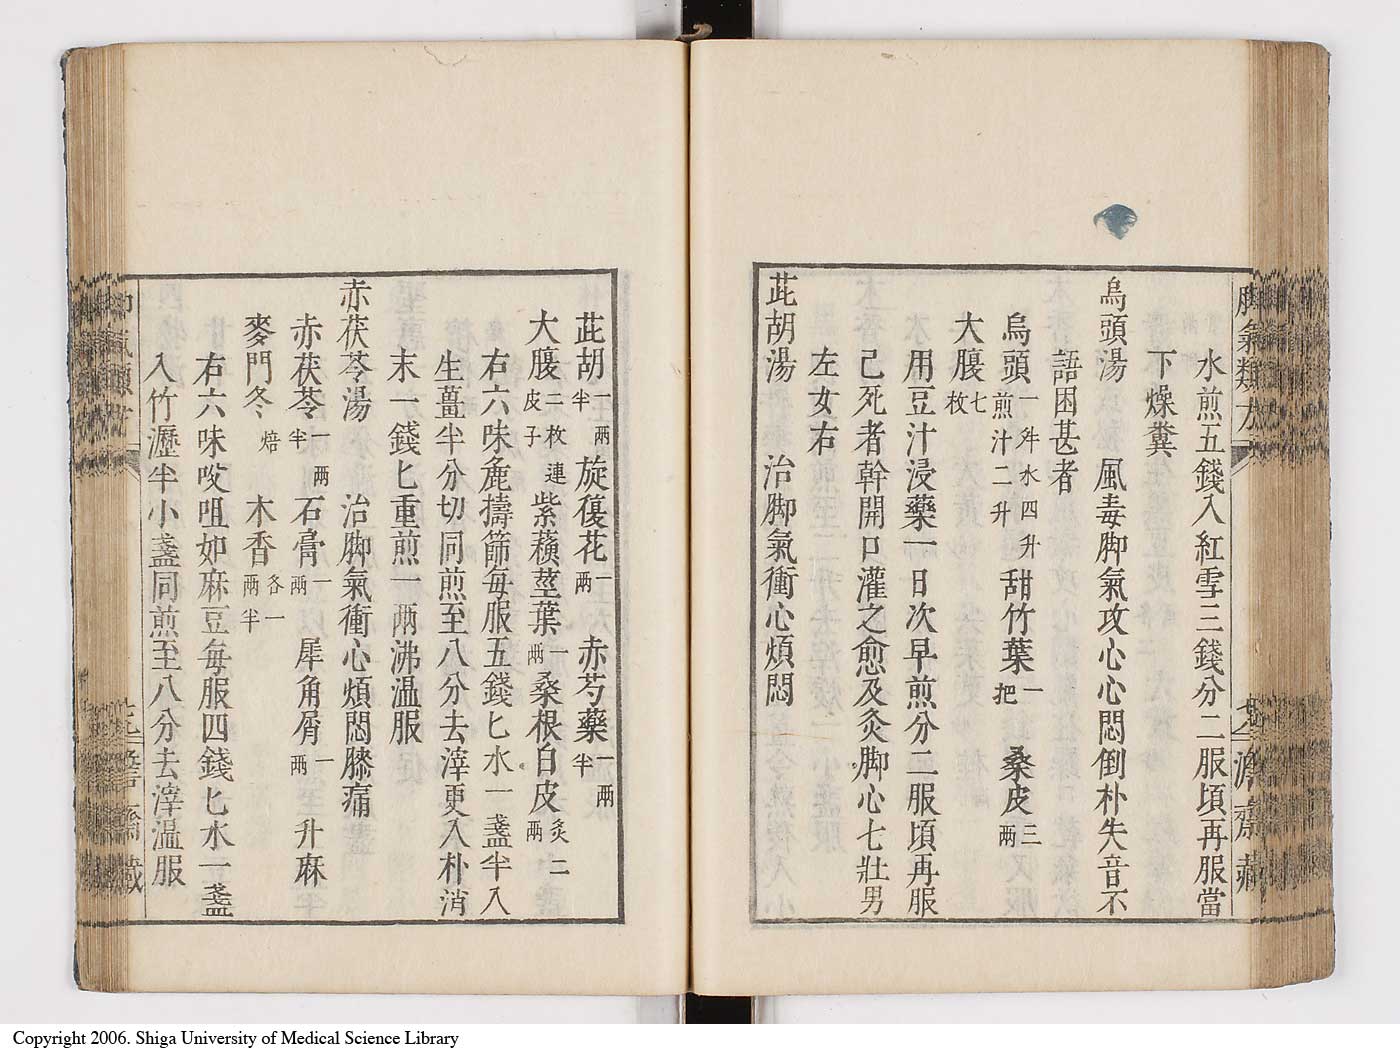 脚氣類方
澹齋藏
水煎五錢入紅雪三錢分二服頃再服當
下燥糞
烏頭湯　風毒脚氣攻心心悶倒朴失音不
語困甚者
烏頭一舛水四升煎汁二升 甜竹葉一把 桑皮三兩
大腹七枚
用豆汁浸藥一日次早煎分二服頃再服
已死者斡開口灌之愈及灸脚心七壯男
左女右
茈胡湯　治脚氣衝心煩悶
茈胡一兩半 旋復花一兩 赤芍藥一兩半
大腹二枚連皮子 紫蘓莖葉一兩 桑根白皮炙二兩
右六味麁擣篩每服五錢匕水一盞半入
生薑半分切同煎至八分去滓更入朴消
末一錢匕重煎一兩沸温服
赤茯苓湯　治脚氣衝心煩悶膝痛
赤茯苓一兩半 石膏一兩 犀角屑一兩 升麻
麥門冬焙 木香各一兩半
右六味㕮咀如麻豆每服四錢匕水一盞
入竹瀝半小盞同煎至八分去滓温服
Copyright 2006. Shiga University of Medical Science Library